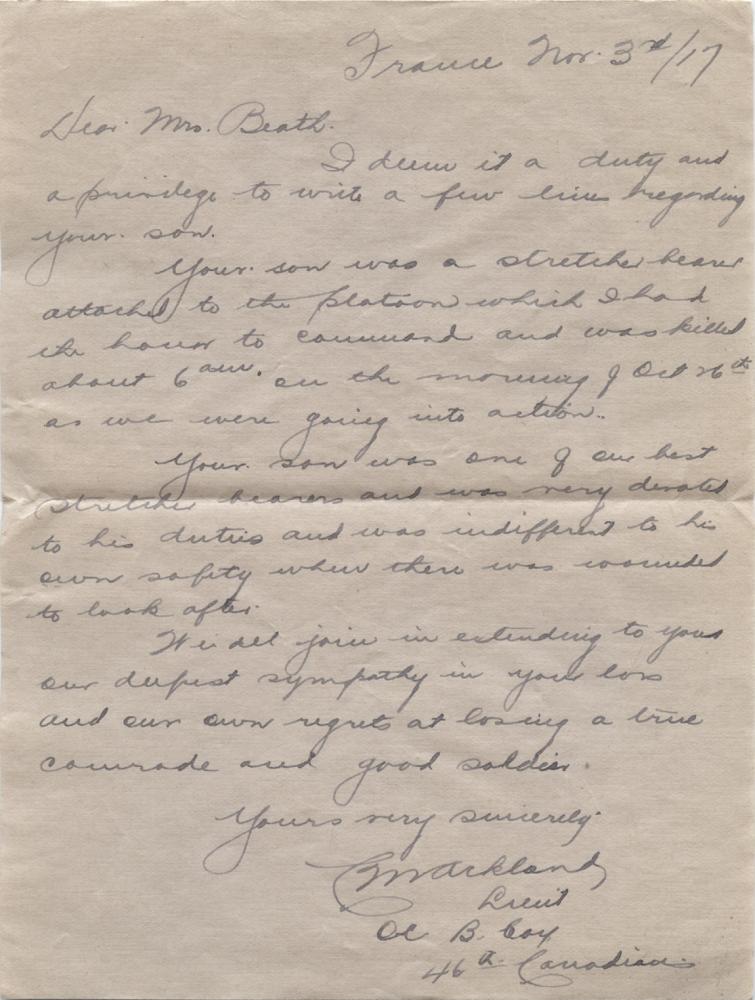 France Nov. 3rd/17
Dear Mrs. Beath.
I deem it a duty and
a privilege to write a few lines regarding
your son.
Your son was a stretcher bearer
attached to the platoon which I had
the honor to command and was killed
about 6 am. on the morning of Oct 26th
as we were going into action.
Your son was one of our best
stretcher bearers and was very devoted
to his duties and was indifferent to his
own safety when there was wounded
to look after.
We all join in extending to you
our deepest sympathy in your loss
and our own regrets at losing a true
comrade and good soldier.
Yours very sincerely
Markland
Lieut
OC B. Coy
46th Canadians